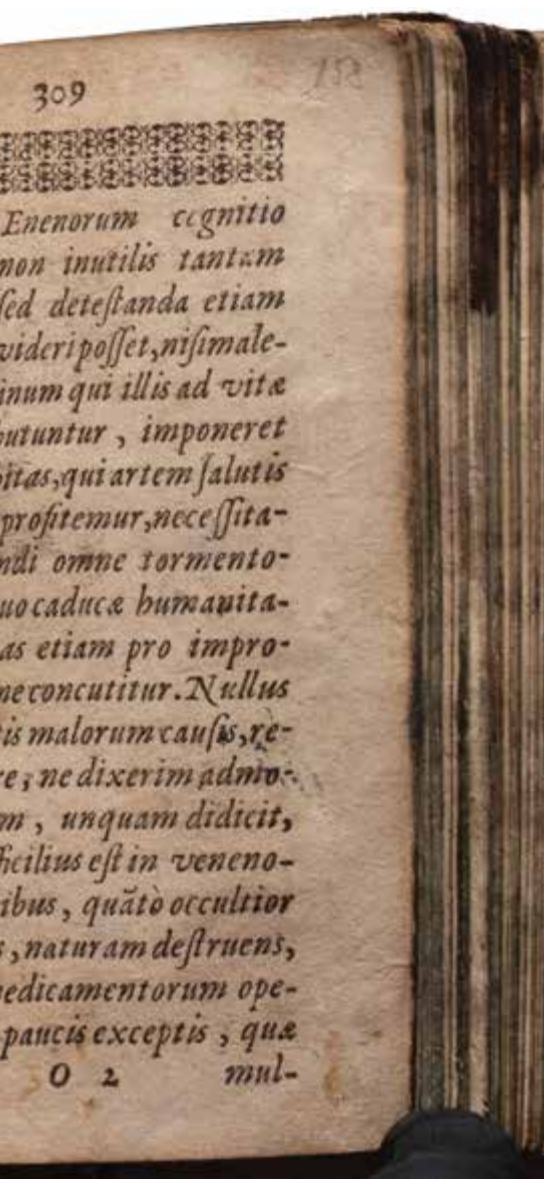 309
158
Enenorum cognitio
non inutilis tantum
sed detestanda etiam
videri posset, nisi male-
qui illis ad vitæ
imponeret
qui artem salutis
profitemur, necessita-
omne tormento-
caducæ humanita-
etiam pro impro-
concutitur. Nullus
malorum causis, re-
ne dixerim admo-
unquam didicit,
est in veneno-
quãtò occultior
naturam destruens,
ope-
paucis exceptis, quæ
O 2 mul-